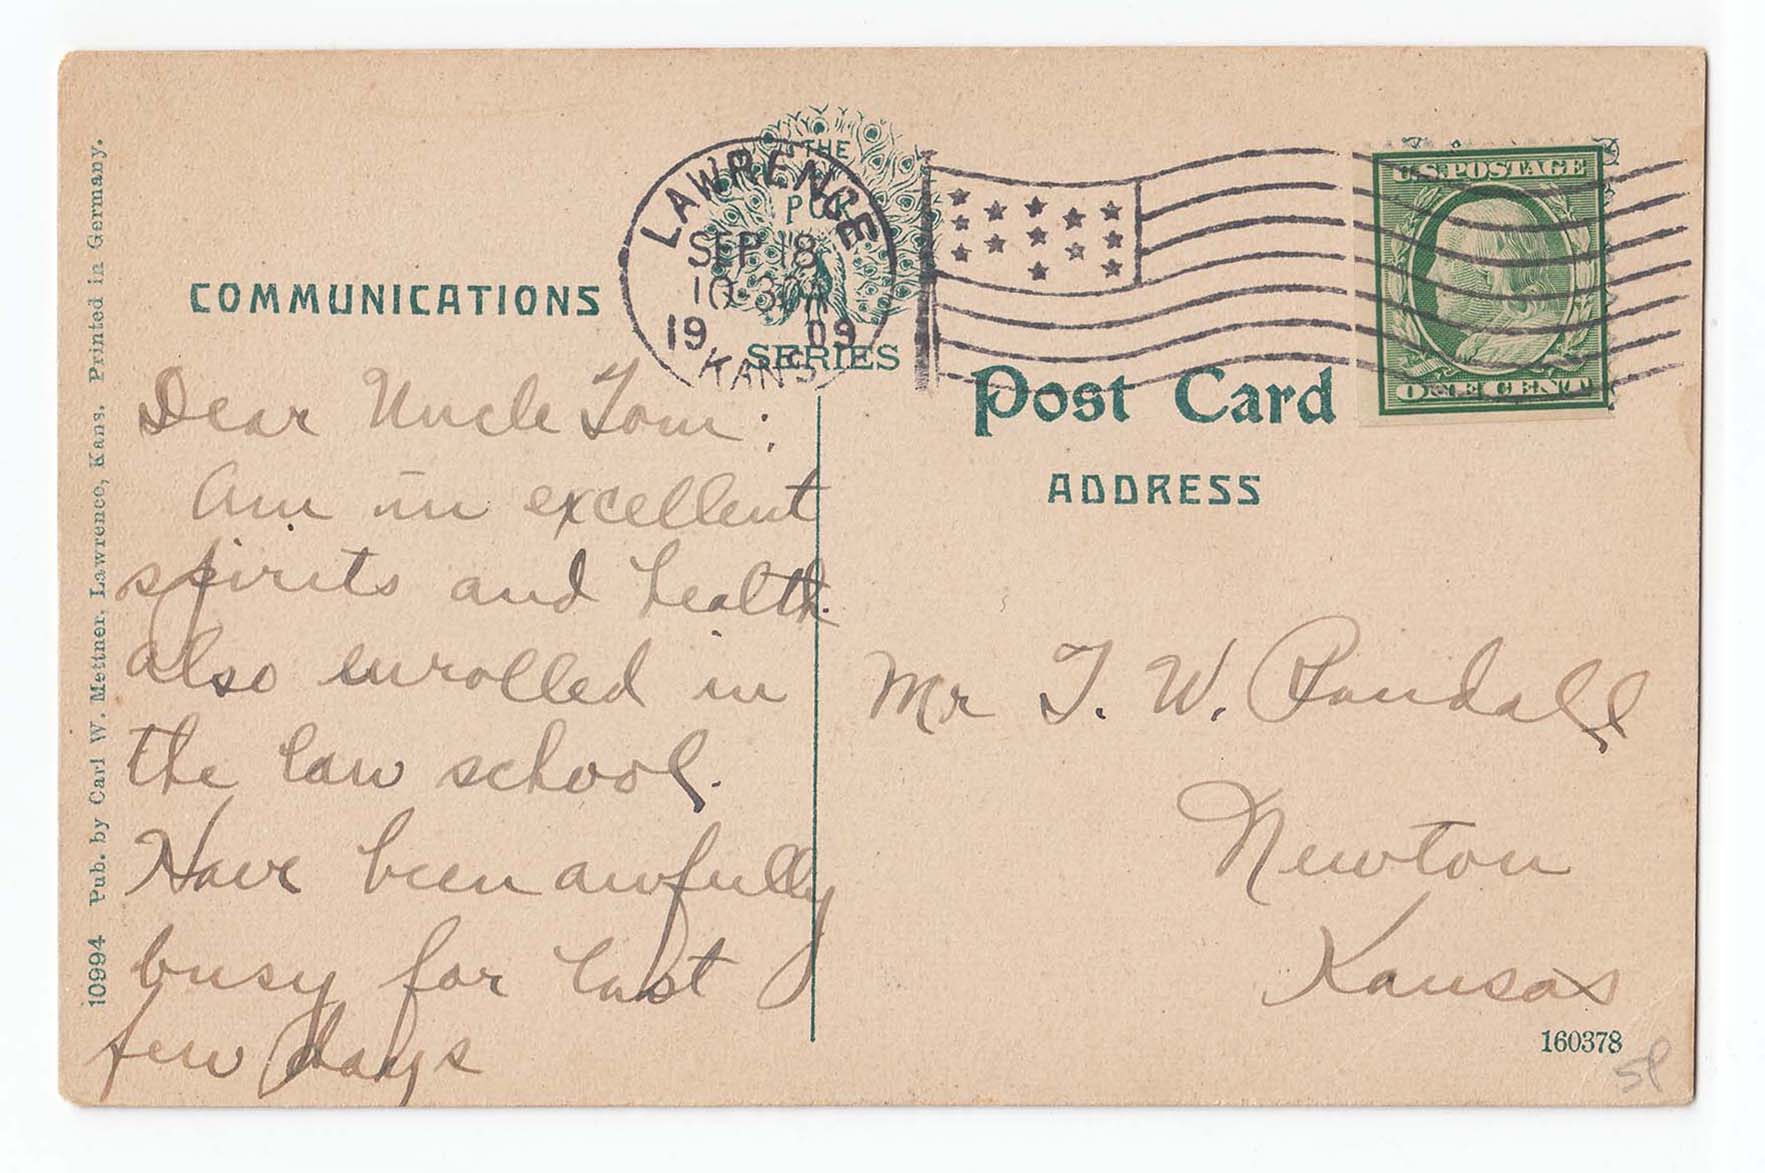 10994 Pub. by Carl W. Mettner, Lawrence, Kans. Printed in Germany.
THE
SERIES
LAWRENCE
SEP 18
10-30A
1909
KANS
U.S. POSTAGE
ONE CENT
COMMUNICATIONS
Post Card
ADDRESS
Dear Uncle Tom:
Am in excellent
spirits and health.
also enrolled in
the law school.
Have been awfully
busy for last
few days
Mr T. W. Randall
Newton
Kansas
160378